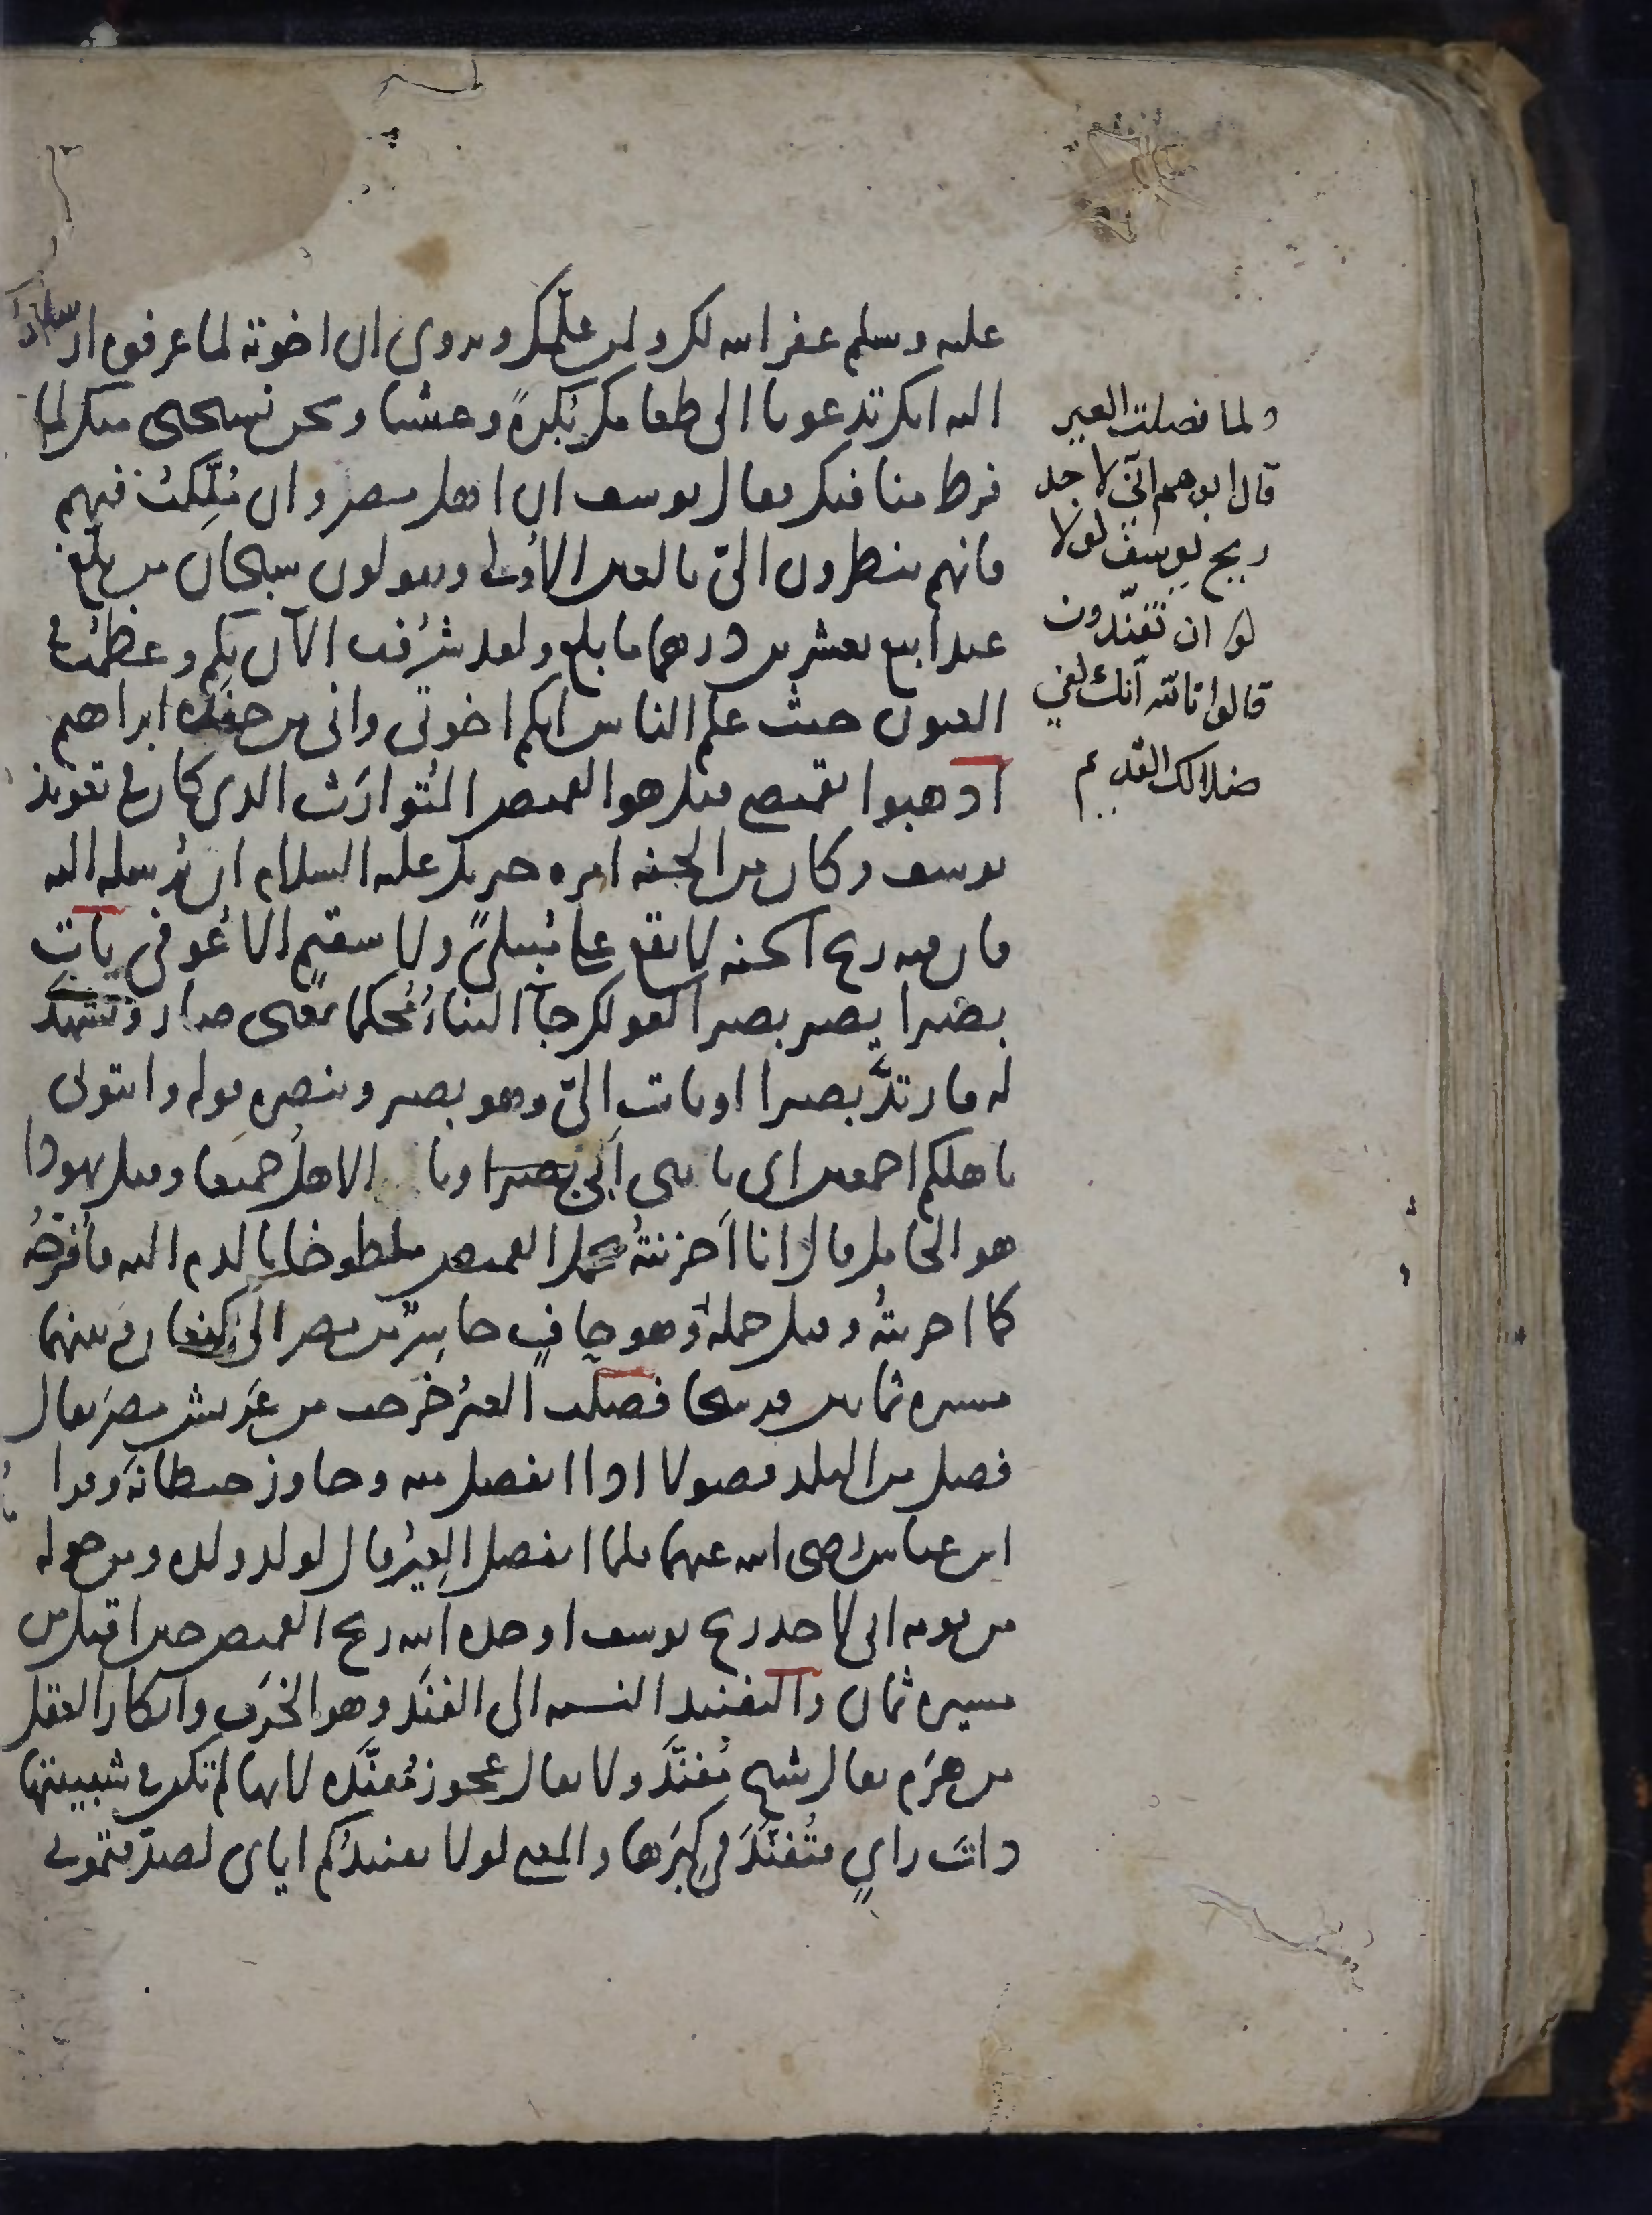 عليه وسلم غفر الله لك ولمن علمك ويروى ان اخوته لما عرفوه ارسلوا
اليه انك تدعونا الى طعامك بكرةً وعشيا ونحن نستحيي منك لما
فرط منا فيك فقال يوسف ان اهل مصر وان مُلِّكتُ فيهم
فانهم ينظرون اليّ بالعين الأولى ويقولون سبحان من بلّغ
عبدا بيع بعشرين درهما ما بلغ ولقد شرُفت الآن بكم وعظمت في
العيون حيث علم الناس انكم اخوتي واني من حفدة ابراهيم
اذهبوا بقميصي قيل هو القميص المُتوارَث الذي كان في تعويذ
يوسف وكان من الجنة امره جبريل عليه السلام ان يُرسله اليه
فان فيه ريح الجنة لا يقع على مُبتلىً ولا سقيم الا عُوفي يأتِ
بصيرا يصر بصيرا كقولك جآ البناءُ مُحكما بمعنى صار ويشهد
له فارتدَّ بصيرا او يات اليّ وهو بصير وينصره قوله وائتوني
باهلكم اجمعين اي ياتي ابي بصيرا ويا الاهل جميعا وقيل يهودا
هو الحامل قال انا احزنتهُ بحمل القميص ملطوخا بالدم اليه فأفرحُه
كما احزنتهُ وقيل حمله وهو حافٍ حاسِرٌ من مصر الى كنعان وبينهما
مسيرة ثمانين فرسخا فصلت العيرُ خرجت من عَريش مصرَ يقال
فصل من البلد فصولا اذا انفصل منه وجاوز حيطانه وقرا
ابن عباس رضى الله عنهما فلما انفصل العيرُ قال لولد ولده ومن حوله
من قومه اني لاجد ريح يوسف اوجده الله ريح القميص حين اقبل من
مسيرة ثمان والتفنيد النسبة الى الفَنَد وهو الخَرَف وانكار العقل
من هرَم يقال شيخ مُفنَّد ولا يقال عجوز مُفنَّدة لانها لم تكن في شبيبتها
ذاتَ رايٍ فتُفنَّدَ في كِبَرها والمعنى لولا تفنيدُكم اياي لصدّقتموني
ولما فصلت العير
قال ابوهم اني لاجد
ريح يوسف لولا
لو ان تفنّدون
قالوا تالله انك لفي
ضلالك القديم